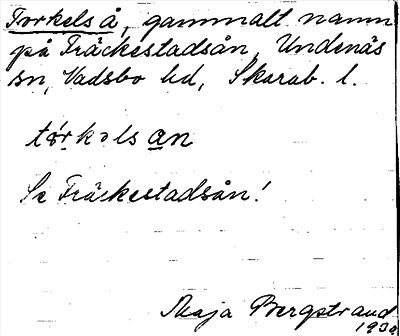 Torkels å, gammalt namn
på Träckestadsån, Undenäs
sn, Vadsbo hd, Skarab. l.
tórkolsan
Se Träckestadsån!
Maja Bergstrand